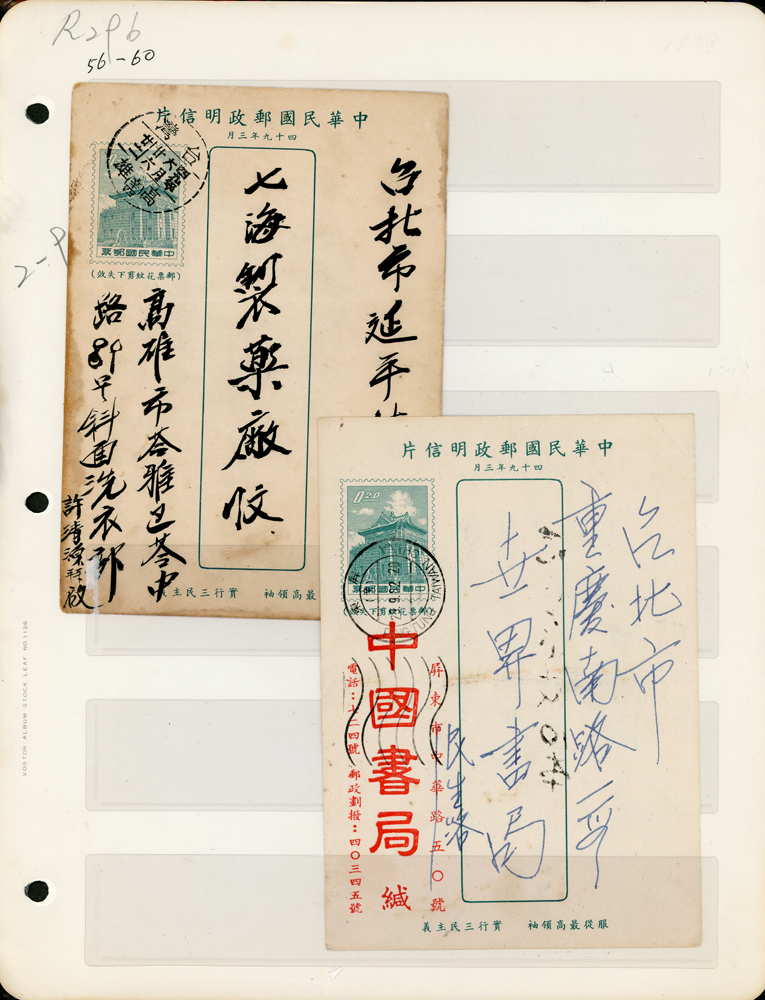 R296
56-60
2-9
中華民國郵政明信片
四十九年三月
台灣
高雄
中華民國郵票
(郵票花紋剪下失效)
台北市延平
七海製藥廠收
高雄市苓雅區苓中
路89号斜面洗衣部
許清源拜啟
最高領袖 實行三民主義
中華民國郵政明信片
四十九年三月
0.20
中華民國郵票
TAIWAN CHINA
台北市
重慶南路一段
世界書局
屏東市中華路五〇號
民生路
中國書局 緘
電話:七二四號 郵政劃撥:四〇三四五號
服從最高領袖 實行三民主義
VOSTOK ALBUM STOCK LEAF NO. 1126